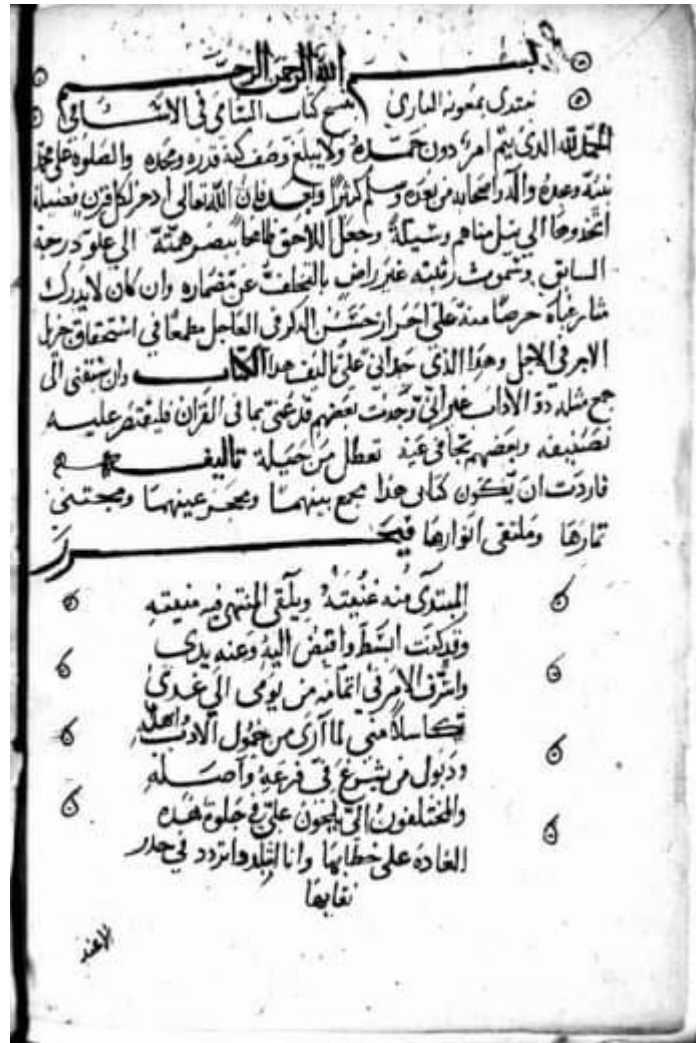 بسم الله الرحمن الرحيم
نبتدى بمعونة البارى بنسخ كتاب السامى فى الاسامى
الحمد لله الذى يتم امر دون حمده ولا يبلغ وصف كنه قدره ومجده والصلوة على محمد
نبيه وعبده واله واصحابه من بعده وسلم كثيرًا وبعد فان الله تعالى ادخر لكل قرن فضيلة
اتخذوها الي نيل مناهم وسيلة وجعل اللاحق طامحًا ببصر همته الي علو درجة
السابق وسموت رتبته غير راض بالتخلف عن مضماره وان كان لا يدرك
مثار غباره حرصًا منه على احراز حسن الذكر فى العاجل مطمعًا في استحقاق جزيل
الاجر فى الاجل وهذا الذى حدانى على تاليف هذا الكتاب وان سبقنى الى
جمع مثله ذوو الاداب غير انى وجدت بعضهم قد عنى بما فى القران فليقتصر عليه
تصنيفه وبعضهم تجافى عنه تعطل من جميلة تاليفه
فاردت ان يكون كتابى هذا مجمع بينهما ومفجر عينهما ومجتنى
ثمارها وملتقى انوارها فيحرز
المبتدى منه غنيته ويلقى المنتهى فيه منيته
وقد كنت ابسط واقبض اليه وعنه يدى
واسوف الامر فى اتمامه من يومى الي غدى
تكاسلا منى لما ارى من خمول الادب واهله
وذبول من يشرع فى فرعه واصله
والمختلفون الي يلحون علي في جلوة هذه
الغادة على خطابها وانا اتبلد واتردد في حدر
نقابها
الاغند